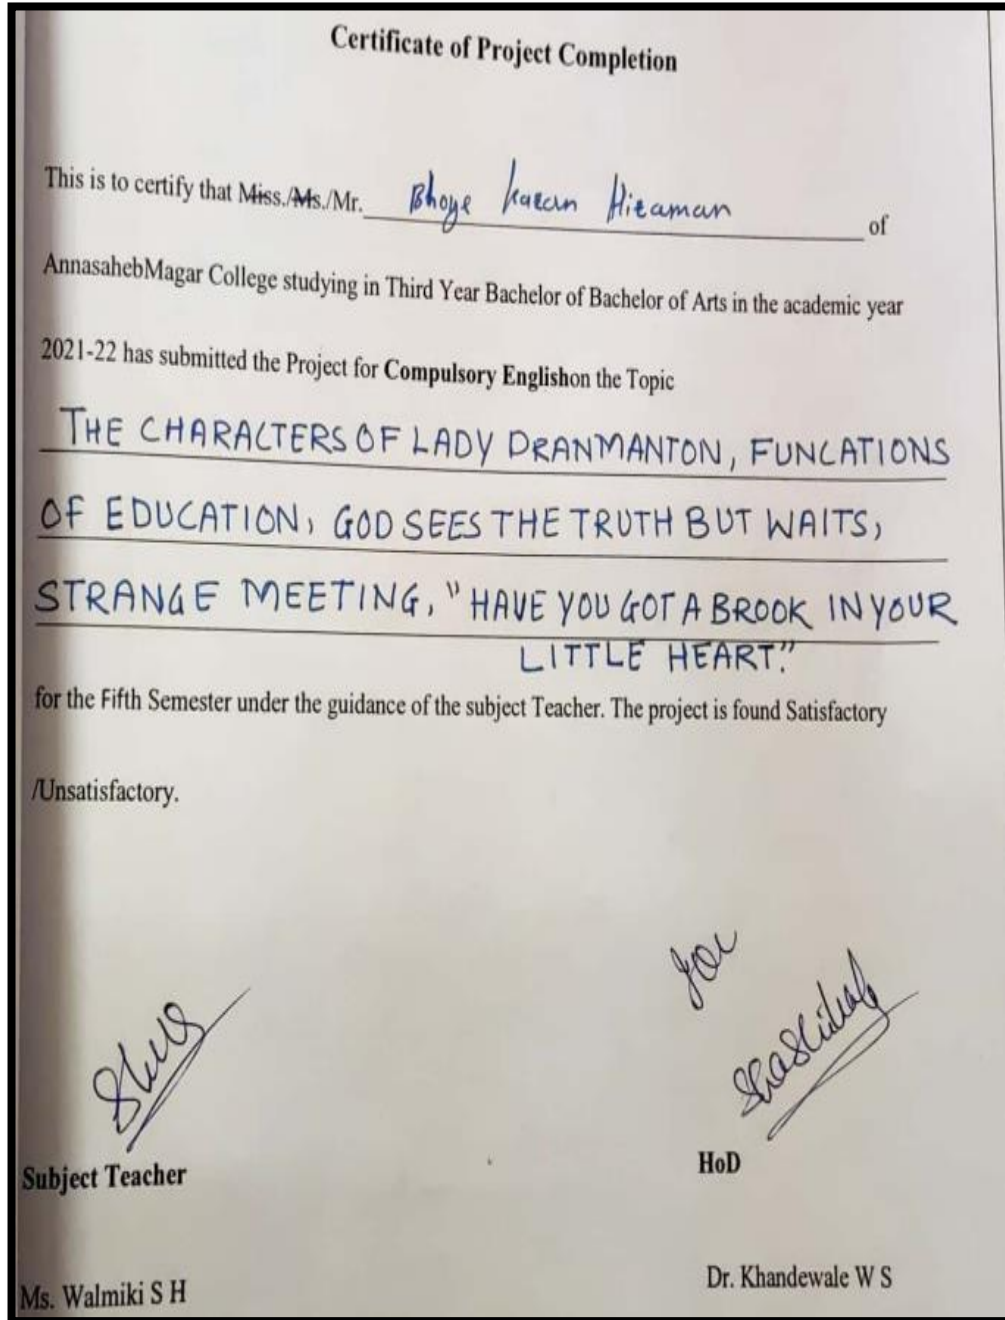 Certificate of Project Completion
This is to certify that Miss./Ms./Mr. Bhoye Karan Hiraman of
AnnasahebMagar College studying in Third Year Bachelor of Bachelor of Arts in the academic year
2021-22 has submitted the Project for Compulsory Englishon the Topic
THE CHARACTERS OF LADY DRANMANTON, FUNCATIONS
OF EDUCATION, GOD SEES THE TRUTH BUT WAITS,
STRANGE MEETING, "HAVE YOU GOT A BROOK IN YOUR
LITTLE HEART."
for the Fifth Semester under the guidance of the subject Teacher. The project is found Satisfactory
/Unsatisfactory.
for
Subject Teacher
HoD
Ms. Walmiki S H
Dr. Khandewale W S